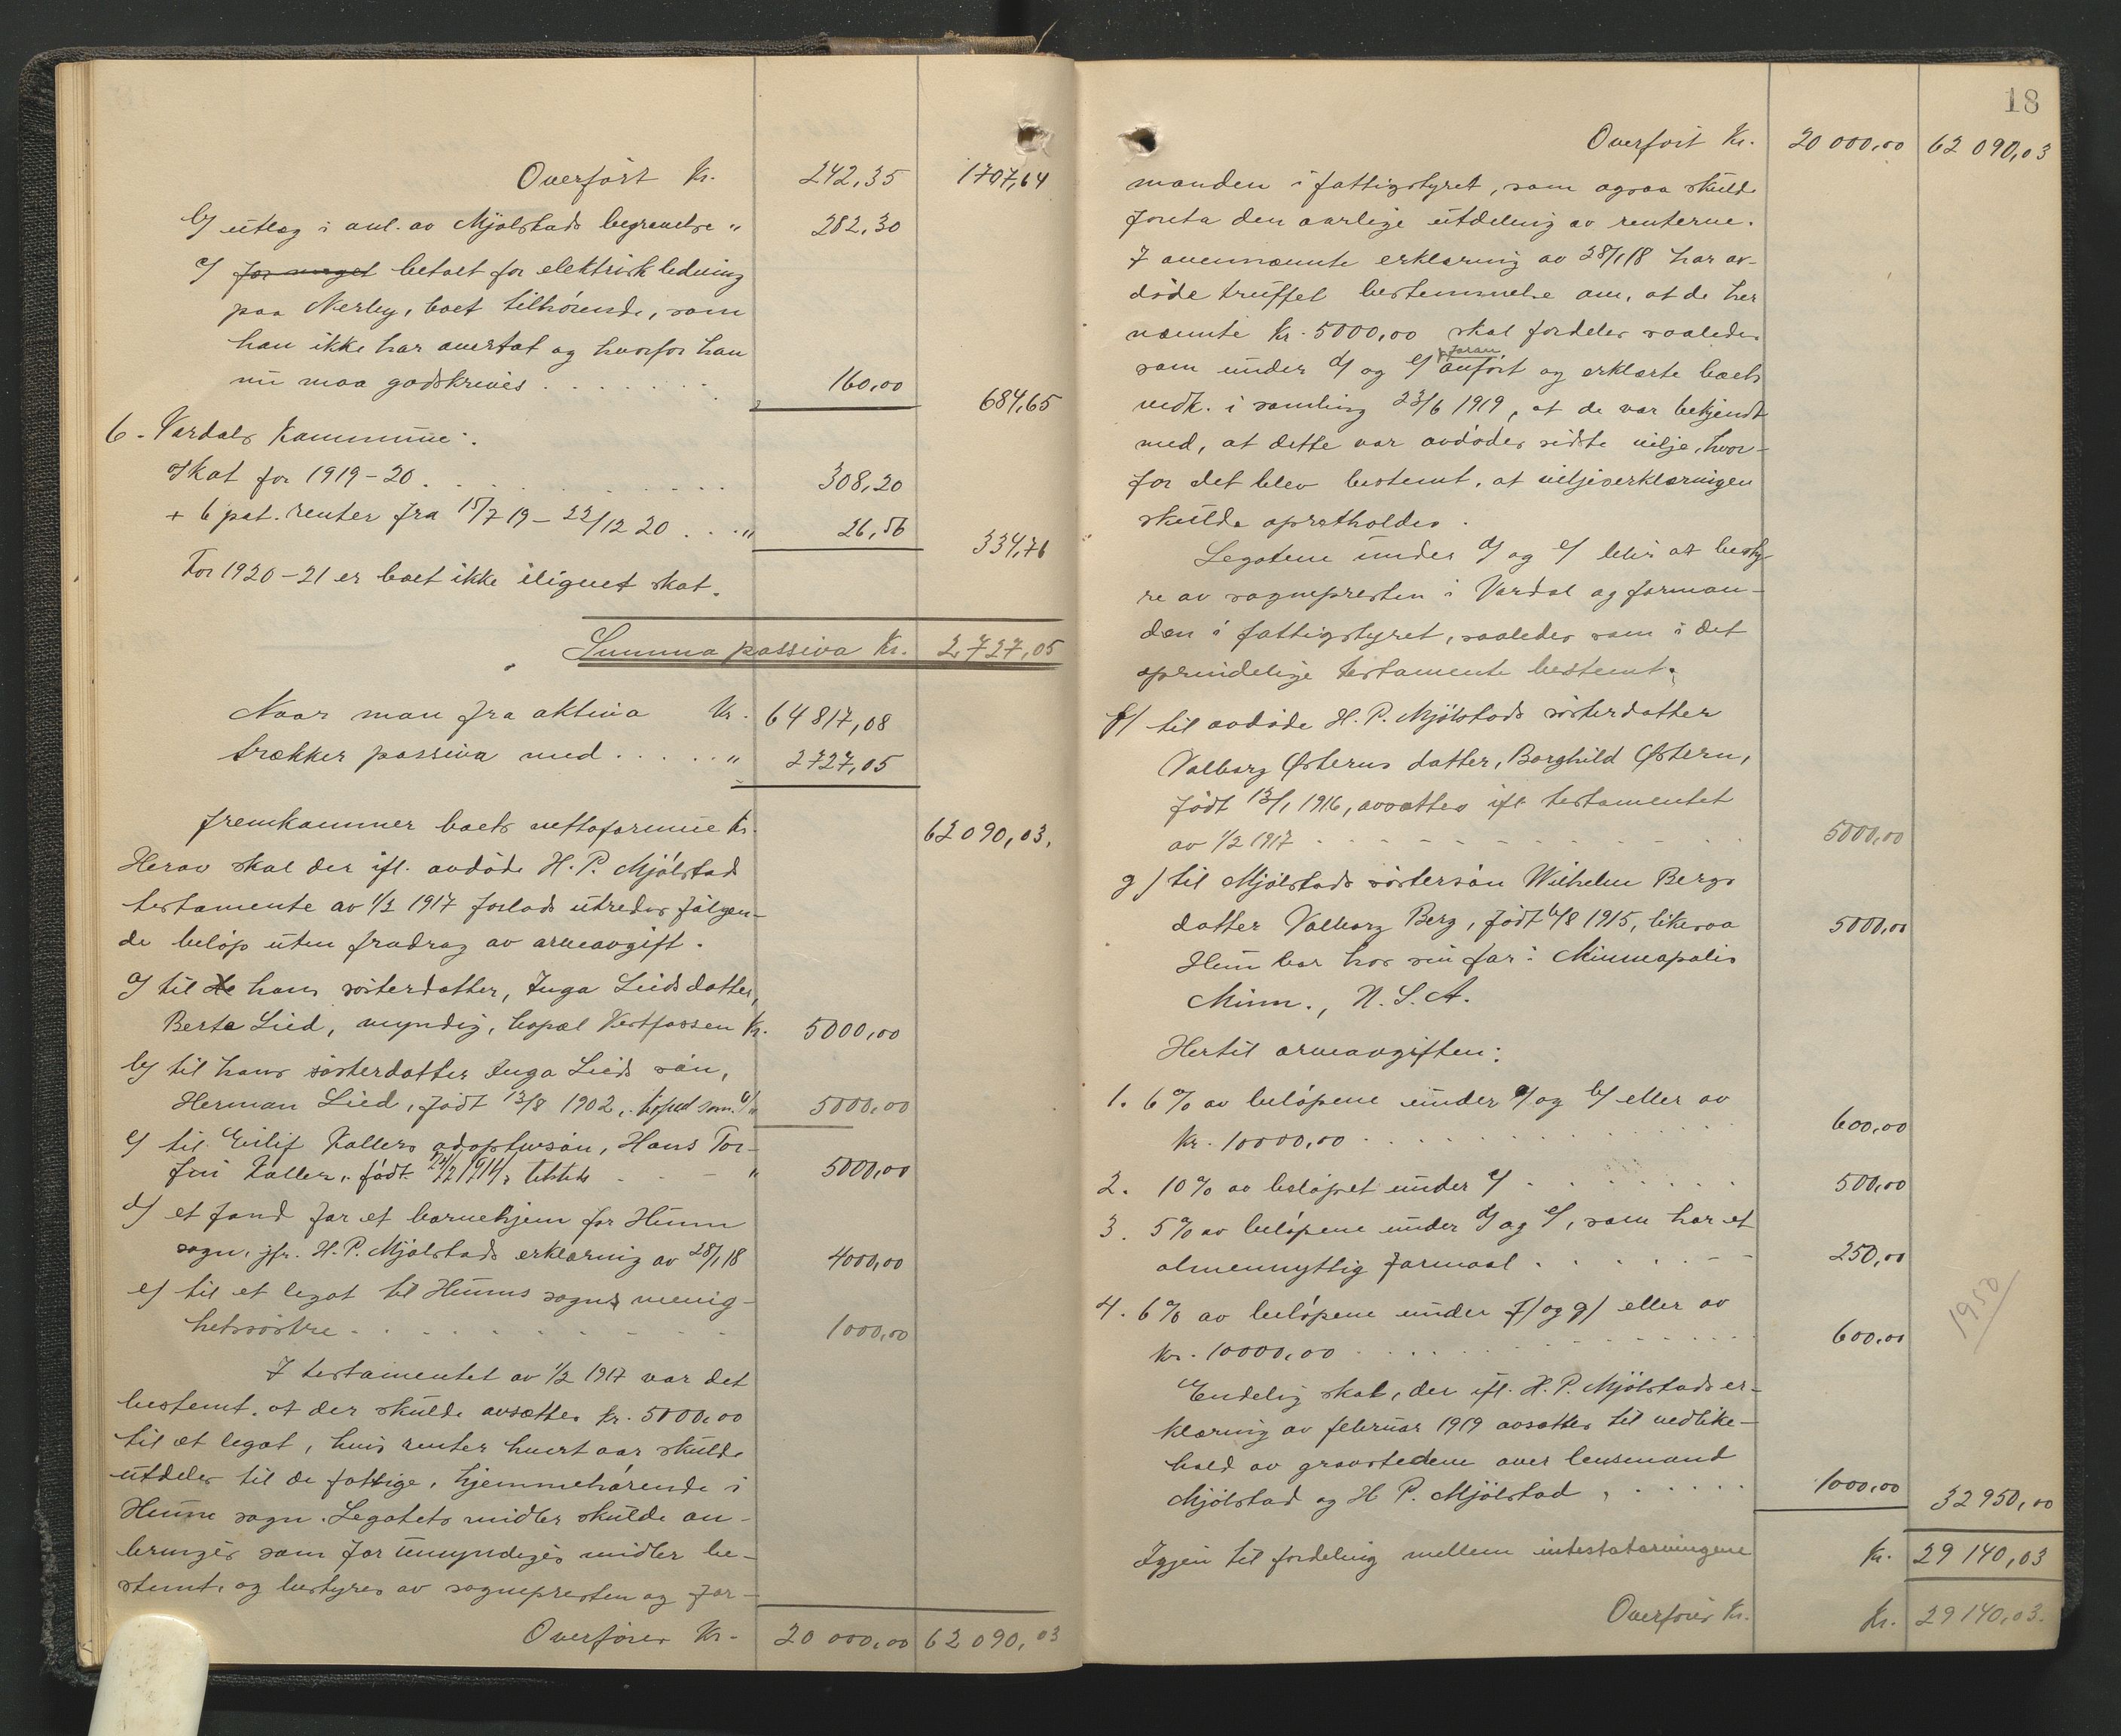 Overført Kr. 242,35 1707,64
b/ utlæg i anl. av Mjølstads begravelse " 282,30
c/ for meget betalt for elektrisk ledning
paa Nerby, boet tilhørende, som
han ikke har overtat og hvorfor han
nu maa godskrives . . . . . . . 160,00 684,65
6. Vardals Kommune:
Skat for 1919-20 . . . . . . . . 308,20
+ 6 pct. renter fra 15/7 19 - 22/12 20 . . . " 26,56 334,76
For 1920-21 er boet ikke ilignet skat.
Summa passiva Kr. 2,727,05
Naar man fra aktiva Kr. 64817,08
trækker passiva med . . . . . " 2727,05
fremkommer boets nettoformue Kr. 62090,03.
Herav skal der ifl. avdøde H. P. Mjølstad
testamente av 1/2 1917 forlods utredes følgen-
de beløp uten fradrag av arveavgift.
a/ til hans søsterdatter, Inga Lieds datter,
Berta Lied, myndig, bopæl Vestfossen Kr. 5000,00
b/ til hans søsterdatter Inga Lieds søn,
Herman Lied, født 13/8 1902, bopæl som a/ " 5000,00
c/ til Eilif Kallers adoptivsøn, Hans Tor-
fin Kaller, født 24/2 1911, - - " 5000,00
d/ et fond for et barnehjem for Hunn
sogn, jfr. H. P. Mjølstads erklæring av 28/1 18 4000,00
e/ til et legat til Hunns sogns menig-
hetssøstre . . . . . . . . . . 1000,00
I testamentet av 1/2 1917 var det
bestemt, at der skulde avsættes kr. 5000,00
til et legat, hvis renter hvert aar skulde
utdeles til de fattige, hjemmehørende i
Hunn sogn. Legatets midler skulde an-
bringes som for umyndiges midler be-
stemt, og bestyres av sognepresten og for-
Overføres Kr. 20 000,00 62 090,03
18
Overført Kr. 20 000,00 62 090,03
manden i fattigstyret, som ogsaa skulde
foreta den aarlige utdeling av renterne.
I ovennævnte erklæring av 28/1 18 har av-
døde truffet bestemmelse om, at de her
nævnte Kr. 5000,00 skal fordeles saaledes
som under d/ og e/ foran anført og erklærte boets
vedk. i samling 23/6 1919, at de var bekjendt
med, at dette var avdødes sidste vilje, hvor-
for det blev bestemt, at viljeserklæringen
skulde opretholdes.
Legatene under d/ og e/ blir at besty-
re av sognepresten i Vardal og forman-
den i fattigstyret, saaledes som i det
oprindelige testamente bestemt.
f/ til avdøde H. P. Mjølstads søsterdatter
Valborg Østerns datter, Borghild Østern,
født 13/1 1916, avsættes ifl. testamentet
av 1/2 1917 . . . . . . . . . . 5000,00
g/ til Mjølstads søstersøn Wilhelm Bergs
datter Valborg Berg, født 6/8 1915, likesaa 5000,00
Hun bor hos sin far i Minneapolis
Minn., N. S. A.
Hertil arveavgiften:
1. 6 % av beløpene under a/ og b/ eller av
Kr. 10000,00 . . . . . . . . . . 600,00
2. 10 % av beløpet under c/ . . . . . . . 500,00
3. 5 % av beløpene under d/ og e/, som har et
almennyttig formaal . . . . . . 250,00
4. 6 % av beløpene under f/ og g/ eller av
Kr. 10000,00 . . . . . . . . . . 600,00
1950
Endelig skal, der ifl. H. P. Mjølstads er-
klæring av februar 1919 avsættes til vedlike-
hold av gravstedene over lensmand
Mjølstad og H. P. Mjølstad . . . . . . 1000,00 32950,00
Igjen til fordeling mellem intestatarvingene Kr. 29 140,03
Overføres Kr. Kr. 29 140,03.